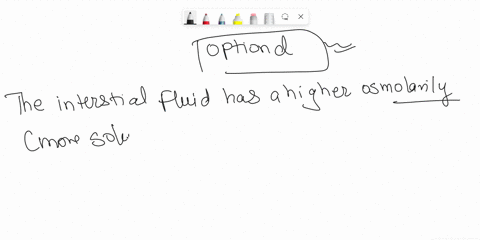 option d
The interstial fluid has a higher osmolarily
(more solu